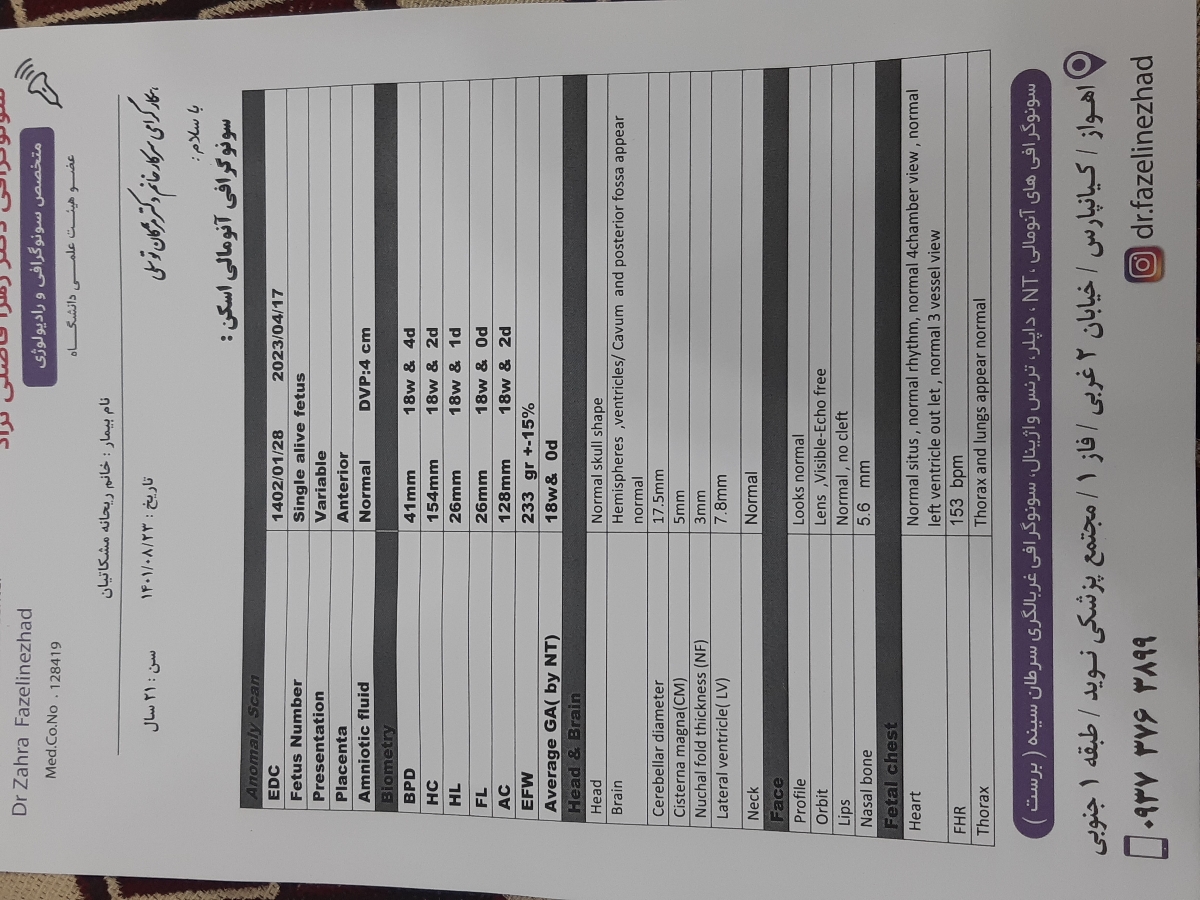 متخصص سونوگرافی و رادیولوژی
عضو هیئت علمی دانشگاه
Dr Zahra Fazelinezhad
Med.Co.No . 128419
نام بیمار : خانم ریحانه مشکاتیان
تاریخ : ۱۴۰۱/۰۸/۲۳
سن : ۲۱ سال
با سلام :
سونوگرافی آنومالی اسکن :
Anomaly Scan
EDC 1402/01/28 2023/04/17
Fetus Number Single alive fetus
Presentation Variable
Placenta Anterior
Amniotic fluid Normal DVP:4 cm
Biometry
BPD 41mm 18w & 4d
HC 154mm 18w & 2d
HL 26mm 18w & 1d
FL 26mm 18w & 0d
AC 128mm 18w & 2d
EFW 233 gr +-15%
Average GA( by NT) 18w& 0d
Head & Brain
Head Normal skull shape
Brain Hemispheres ,ventricles/ Cavum and posterior fossa appear
normal
Cerebellar diameter 17.5mm
Cisterna magna(CM) 5mm
Nuchal fold thickness (NF) 3mm
Lateral ventricle( LV) 7.8mm
Neck Normal
Face
Profile Looks normal
Orbit Lens ,Visible-Echo free
Lips Normal , no cleft
Nasal bone 5.6 mm
Fetal chest
Heart Normal situs , normal rhythm, normal 4chamber view , normal
left ventricle out let , normal 3 vessel view
FHR 153 bpm
Thorax Thorax and lungs appear normal
سونوگرافی های آنومالی ، NT ، داپلر، ترنس واژینال، سونوگرافی غربالگری سرطان سینه ( برست )
اهواز / کیانپارس / خیابان ۲ غربی / فاز ۱ / مجتمع پزشکی نوید / طبقه ۱ جنوبی
۰۹۳۷ ۳۷۶ ۳۸۹۹
dr.fazelinezhad